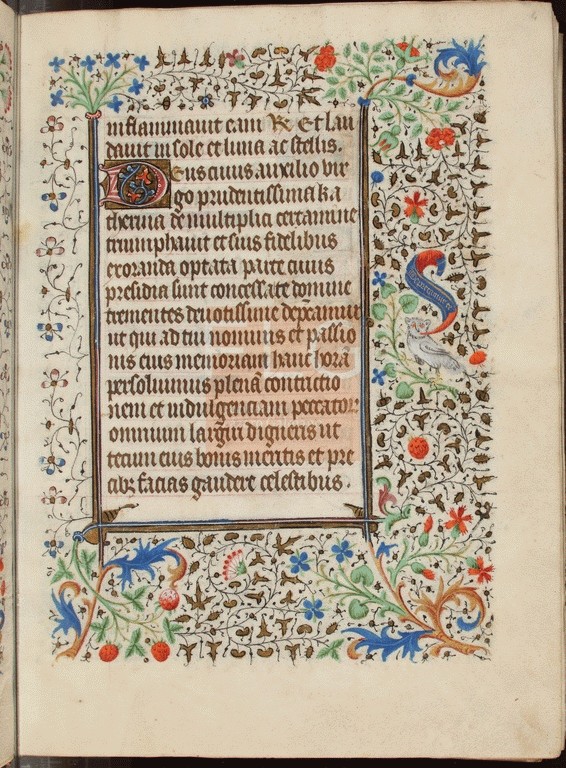 inflammavit eam R Et lau
davit in sole et luna ac stellis.
Deus cuius auxilio vir
go prudentissima ka
therina de multiplici certamine
triumphavit et suis fidelibus
exoranda optata parte cuius
presidia sunt concessa te domine
trementes devotissime dep̄camur
ut qui ad tui nominis et passio
nis eius memoriam hanc horā
persolvimus plenā contrictio
nem et indulgenciam peccatoꝝ
omnium largiri digneris ut
tecum eius bonis meritis et pre
cibꝫ facias gaudere celestibus.